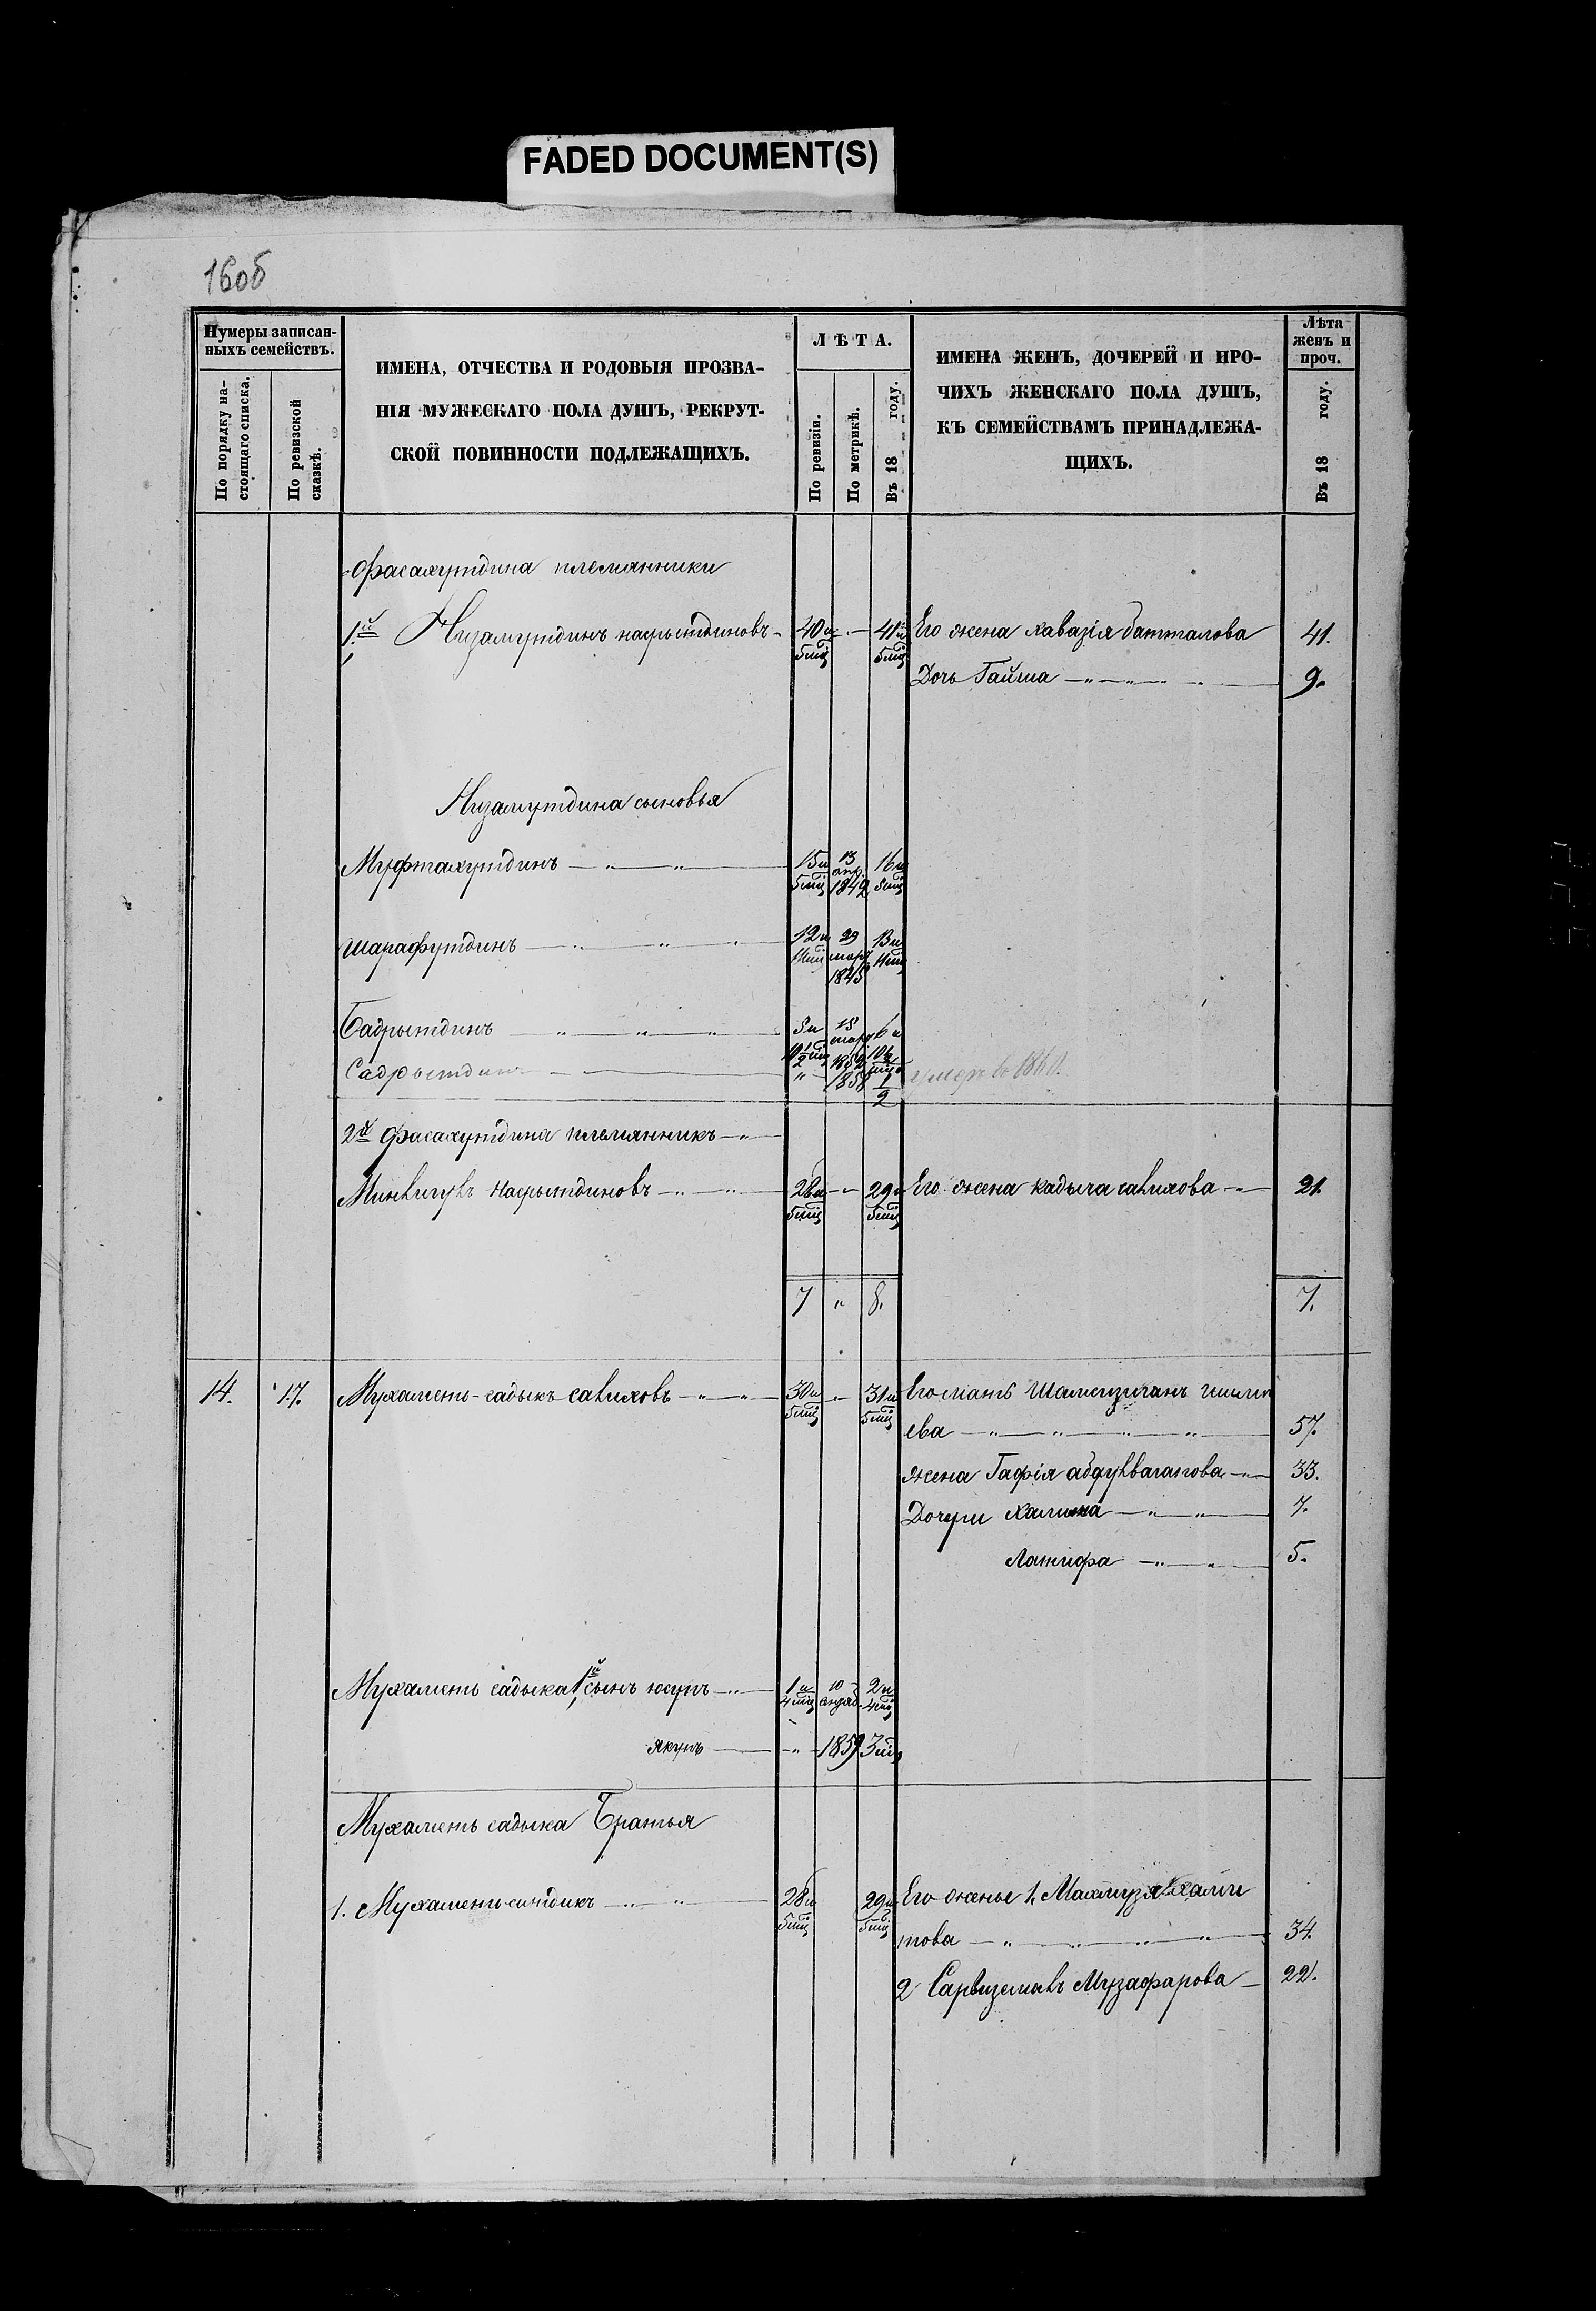 FADED DOCUMENT(S)
16об
Нумеры записан-
ныхъ семействъ.
По порядку на-
стоящаго списка.
По ревизской
сказкѣ.
ИМЕНА, ОТЧЕСТВА И РОДОВЫЯ ПРОЗВА-
НІЯ МУЖЕСКАГО ПОЛА ДУШЪ, РЕКРУТ-
СКОЙ ПОВИННОСТИ ПОДЛЕЖАЩИХЪ.
ЛѢТА.
По ревизіи.
По метрикѣ.
Въ 18 году.
ИМЕНА ЖЕНЪ, ДОЧЕРЕЙ И ПРО-
ЧИХЪ ЖЕНСКАГО ПОЛА ДУШЪ,
КЪ СЕМЕЙСТВАМЪ ПРИНАДЛЕЖА-
ЩИХЪ.
Лѣта
женъ и
проч.
Въ 18 году.
Фасахутдина племянники
1й Низамутдинъ насрытдиновъ 40 и 5 мц - 41 и 5 мц Его жена хавазія батталова 41.
Дочь Гайша 9.
Низамутдина сыновья
Муфтахутдинъ 15 и 5 мц 13 апр. 1842 16 и 5 мц
шарафутдинъ 12 и 11 мц 29 мар. 1845 13 и 11 мц
Бадрытдинъ 5 и 10 1/2 мц 15 мар. 1852 6 и 10 1/2 мц
Садрытдинъ " 1858 1/2 умеръ в 1860.
2й Фасахутдина племянникъ
насрытдиновъ 28 и 5 мц - 29 и 5 мц Его жена кадыча савихова 21.
7 " 8. 7.
14. 17. Мухаметь-садыкъ савиховъ 30 и 5 мц - 31 и 5 мц Его мать
ева 57.
жена Гафія 33.
Дочери Халима 7.
Латифа 5.
Мухаметь садыка 1й сынъ юсупъ 1 и 4 мц 10 2 и 4 мц
якупъ " 1859 3 мц
Мухаметь садыка Братья
1. Мухаметь-ситдикъ 28 и 5 мц 29 и 5 мц Его жены 1,
това 34.
2 Музафарова 22.